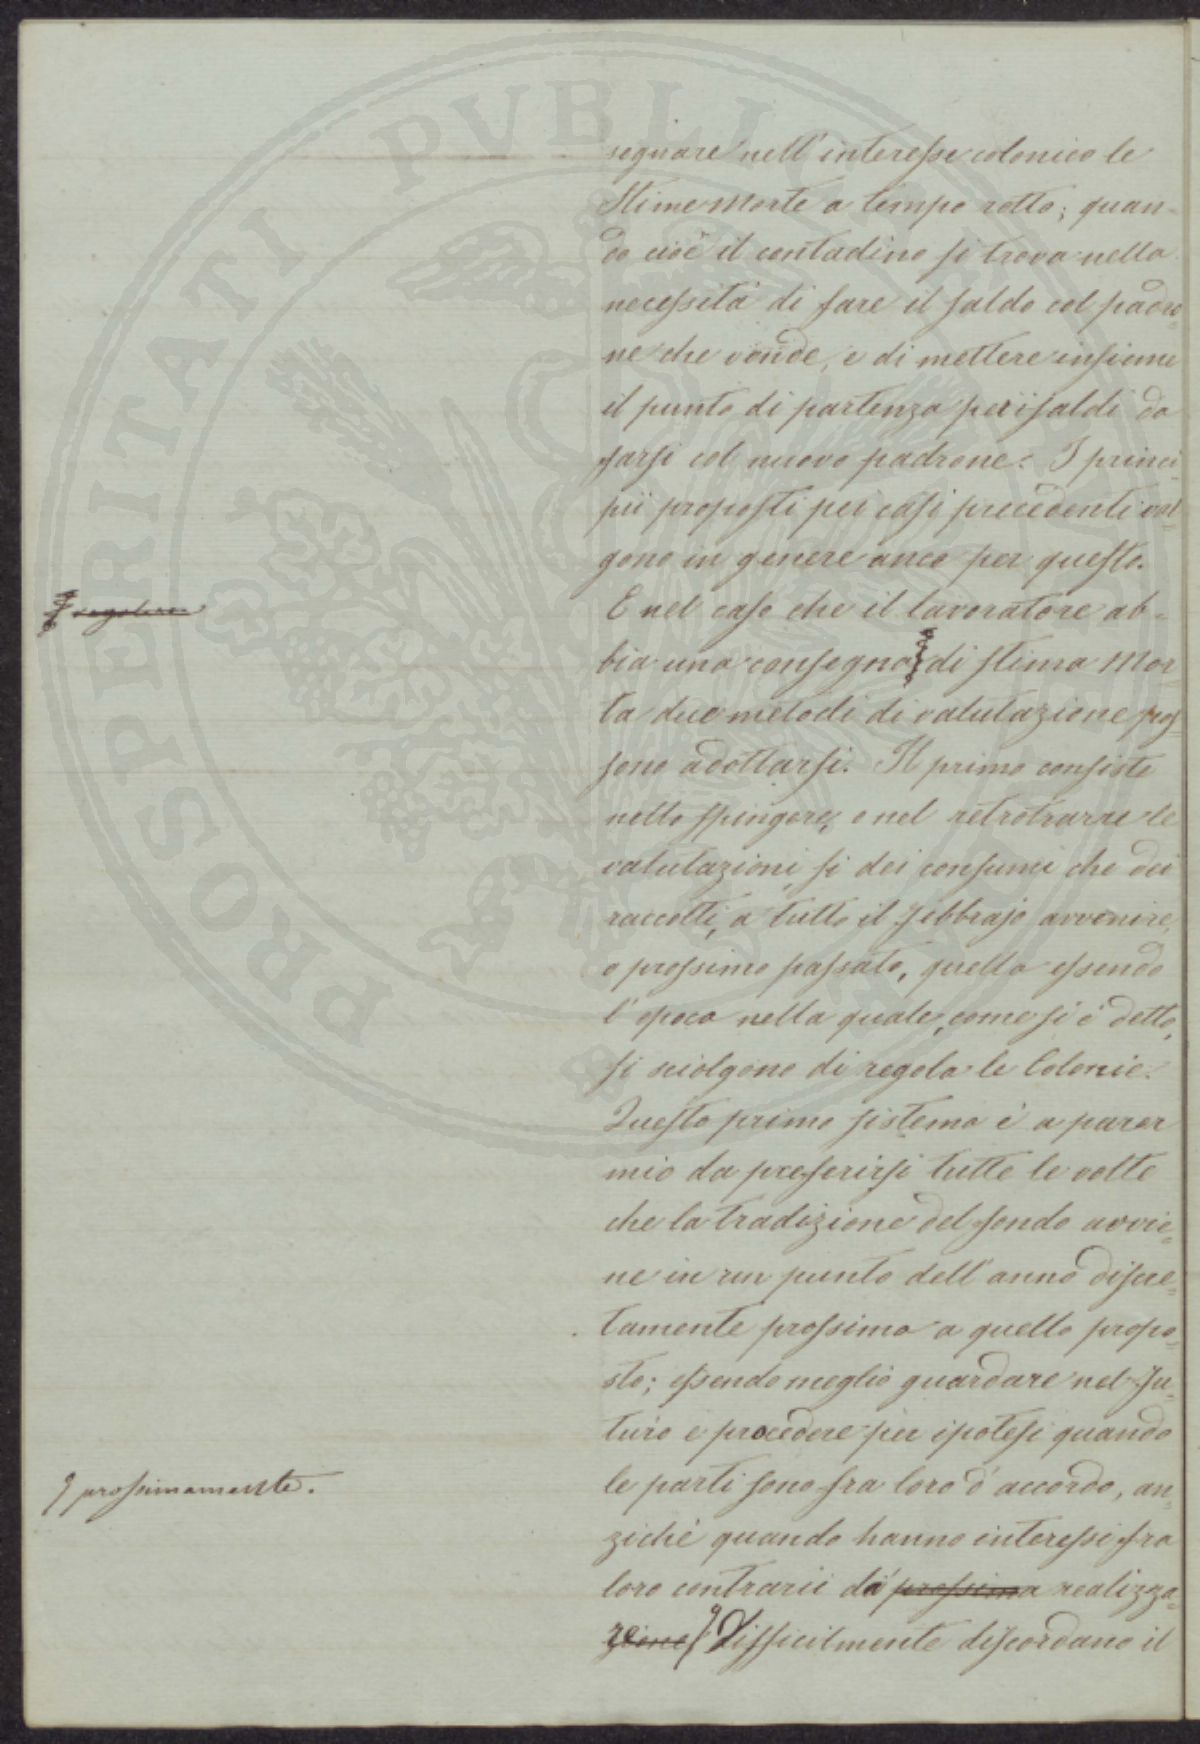 segnare nell'interesse colonico le
Stime Morte a tempo rotto; quan-
do cioè il contadino si trova nella
necessità di fare il saldo col padro-
ne che vende, e di mettere insieme
il punto di partenza per i saldi da
farsi col nuovo padrone. I princi-
pii proposti pei casi precedenti val-
gono in genere anco per questo.
E nel caso che il lavoratore ab-
regolare
bia una consegna di stima Mor-
ta due metodi di valutazione pos-
sono adottarsi. Il primo consiste
nello spingere, o nel retrotrarre le
valutazioni sì dei consumi che dei
raccolti, a tutto il Febbrajo avvenire,
o prossimo passato, quella essendo
l'epoca nella quale, come si è detto,
si sciolgono di regola le Colonie.
Questo primo sistema è a parer
mio da preferirsi tutte le volte
che la tradizione del fondo avvie-
ne in un punto dell'anno discre-
tamente prossimo a quello propo-
sto; essendo meglio guardare nel fu-
turo e procedere per ipotesi quando
le parti sono fra loro d'accordo, an-
prossimamente.
zichè quando hanno interessi fra
loro contrarii da prossima realizza-
zione difficilmente discordano il
PROSPERITATI PUBLICAE